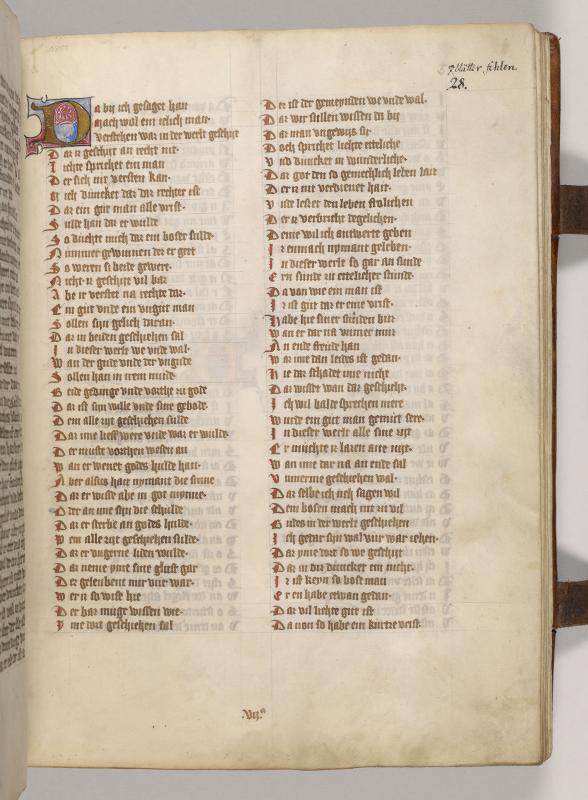 9 blätter fehlen
28.
Da bij ich gesaget han
Mach wol ein iclich man
Verstehen war in der werlt geschijt
Daz is geschijt an recht nit
Ichte sprichet ein man
Der sich nit versten kan
Mich duncket daz daz rechter ist
Daz ein gut man alle vrist
Sulde han daz er wulde
So duchte mich daz ein boser sulde
Nummer gewinnen des er gert
So weren si beide gewert
Nicht is geschijt vil baz
Abe ir verstet na rechte daz
Ein gut vnde ein vngut man
Sollen sijn gelich daran
Daz in beiden geschiehen sal
In dieser werlt we vnde wal
Wan der gude vnde der vngude
Sollen han in irem mude
Beide gedinge vnde vorchte zu gode
Daz ist sijn wille vnde sine gebode
Dem alle zijt geschiehen sulde
Daz ime lieff were vnde waz er wulde
Der muste vorchten wesen an
Wan er wenet godes hulde han
Aber alsus han nymant die sinne
Daz er wiste abe in got mynne
Oder an ime sijn die schulde
Daz er sterbe an godes hulde
Wem alle zijt geschiehen sulde
Daz er vngerne liden wulde
Daz neme pine sine glust gar
Daz geleubent mir vur war
Wer is so wist hie
Der baz muge wissen wie
Yme dort geschiehen sal
Daz ist der gemeynden we vnde wal
Daz wir sullen wissen da bij
Daz man vngewijs sij
Doch sprichet liechte etteliche
Vnd duncket in wunderliche
Daz got den so gemechlich leben lait
Der is nit verdienet hait
Vnde leßet den leben frolichen
Der is verbricht degelichen
Deme wil ich antwerte geben
Ir enmach nymant geleben
In dieser werlt so gar an sunde
Ern sunde zu ettelicher stunde
Da von wie im ist
Ir ist gut daz er eine vrist
Habe hie siner sunden bur
Wan er dar na ummer mur
An ende freude han
Waz ime dan leides ist gedan
Hie daz schadet ime nicht
Daz wisset wan daz geschieht
Ich wil balde sprechen mere
Wurde ein gut man gemuet sere
In dieser werlt alle sine zijt
Er muchte is lazen ane nijt
Wan ime dar na an ende sal
Vmmerme geschiehen wal
Daz selbe ich uch sagen wil
Dem bosen mach nit zu vil
Gudes in der werlt geschiehen
Ich gedar sijn wal vur war iehen
Daz yme dort so we geschijt
Daz in diz duncket ein nicht
Ir ist keyn so bose man
Er en habe etwan gedan
Daz vil lichte gut ist
Da von so habe ein kurtze vrist
.vij.